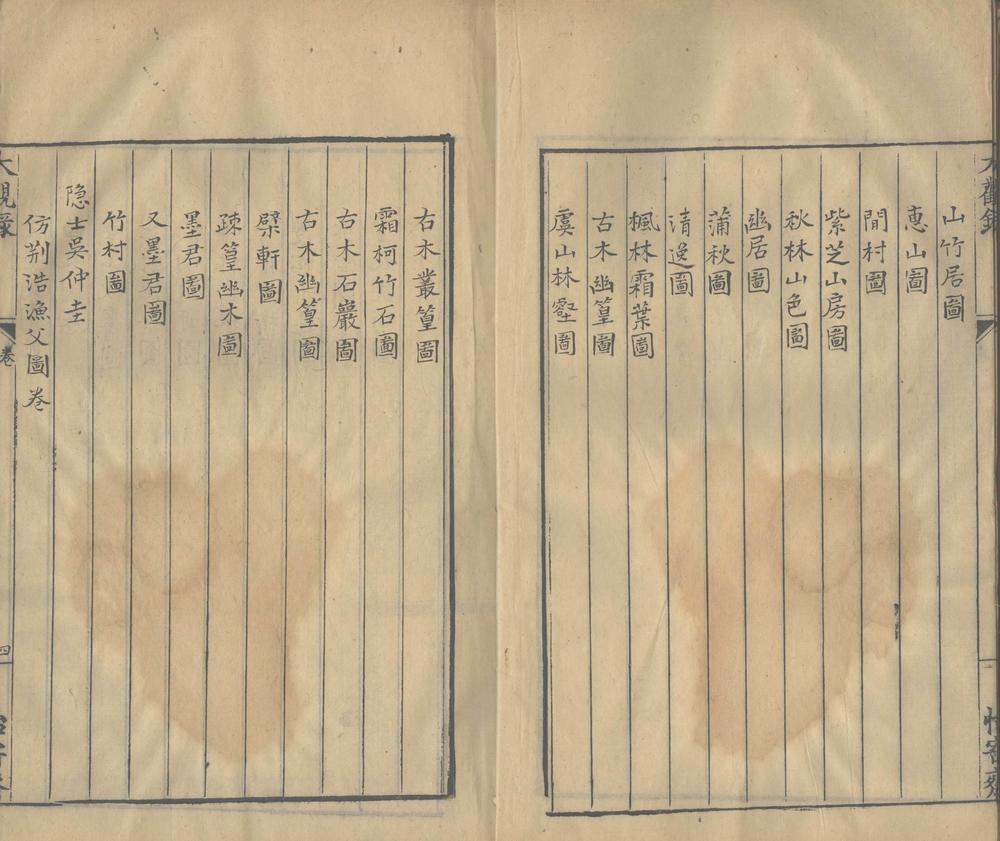 山竹居圖
惠山圖
間村圖
紫芝山房圖
秋林山色圖
幽居圖
蒲秋圖
清逸圖
楓林霜葉圖
古木幽篁圖
虞山林壑圖
古木叢篁圖
霜柯竹石圖
古木石巖圖
古木幽篁圖
檗軒圖
疎篁幽木圖
墨君圖
又墨君圖
竹村圖
隐士吳仲圭
仿荆浩漁父圖卷
大觀录
卷
四